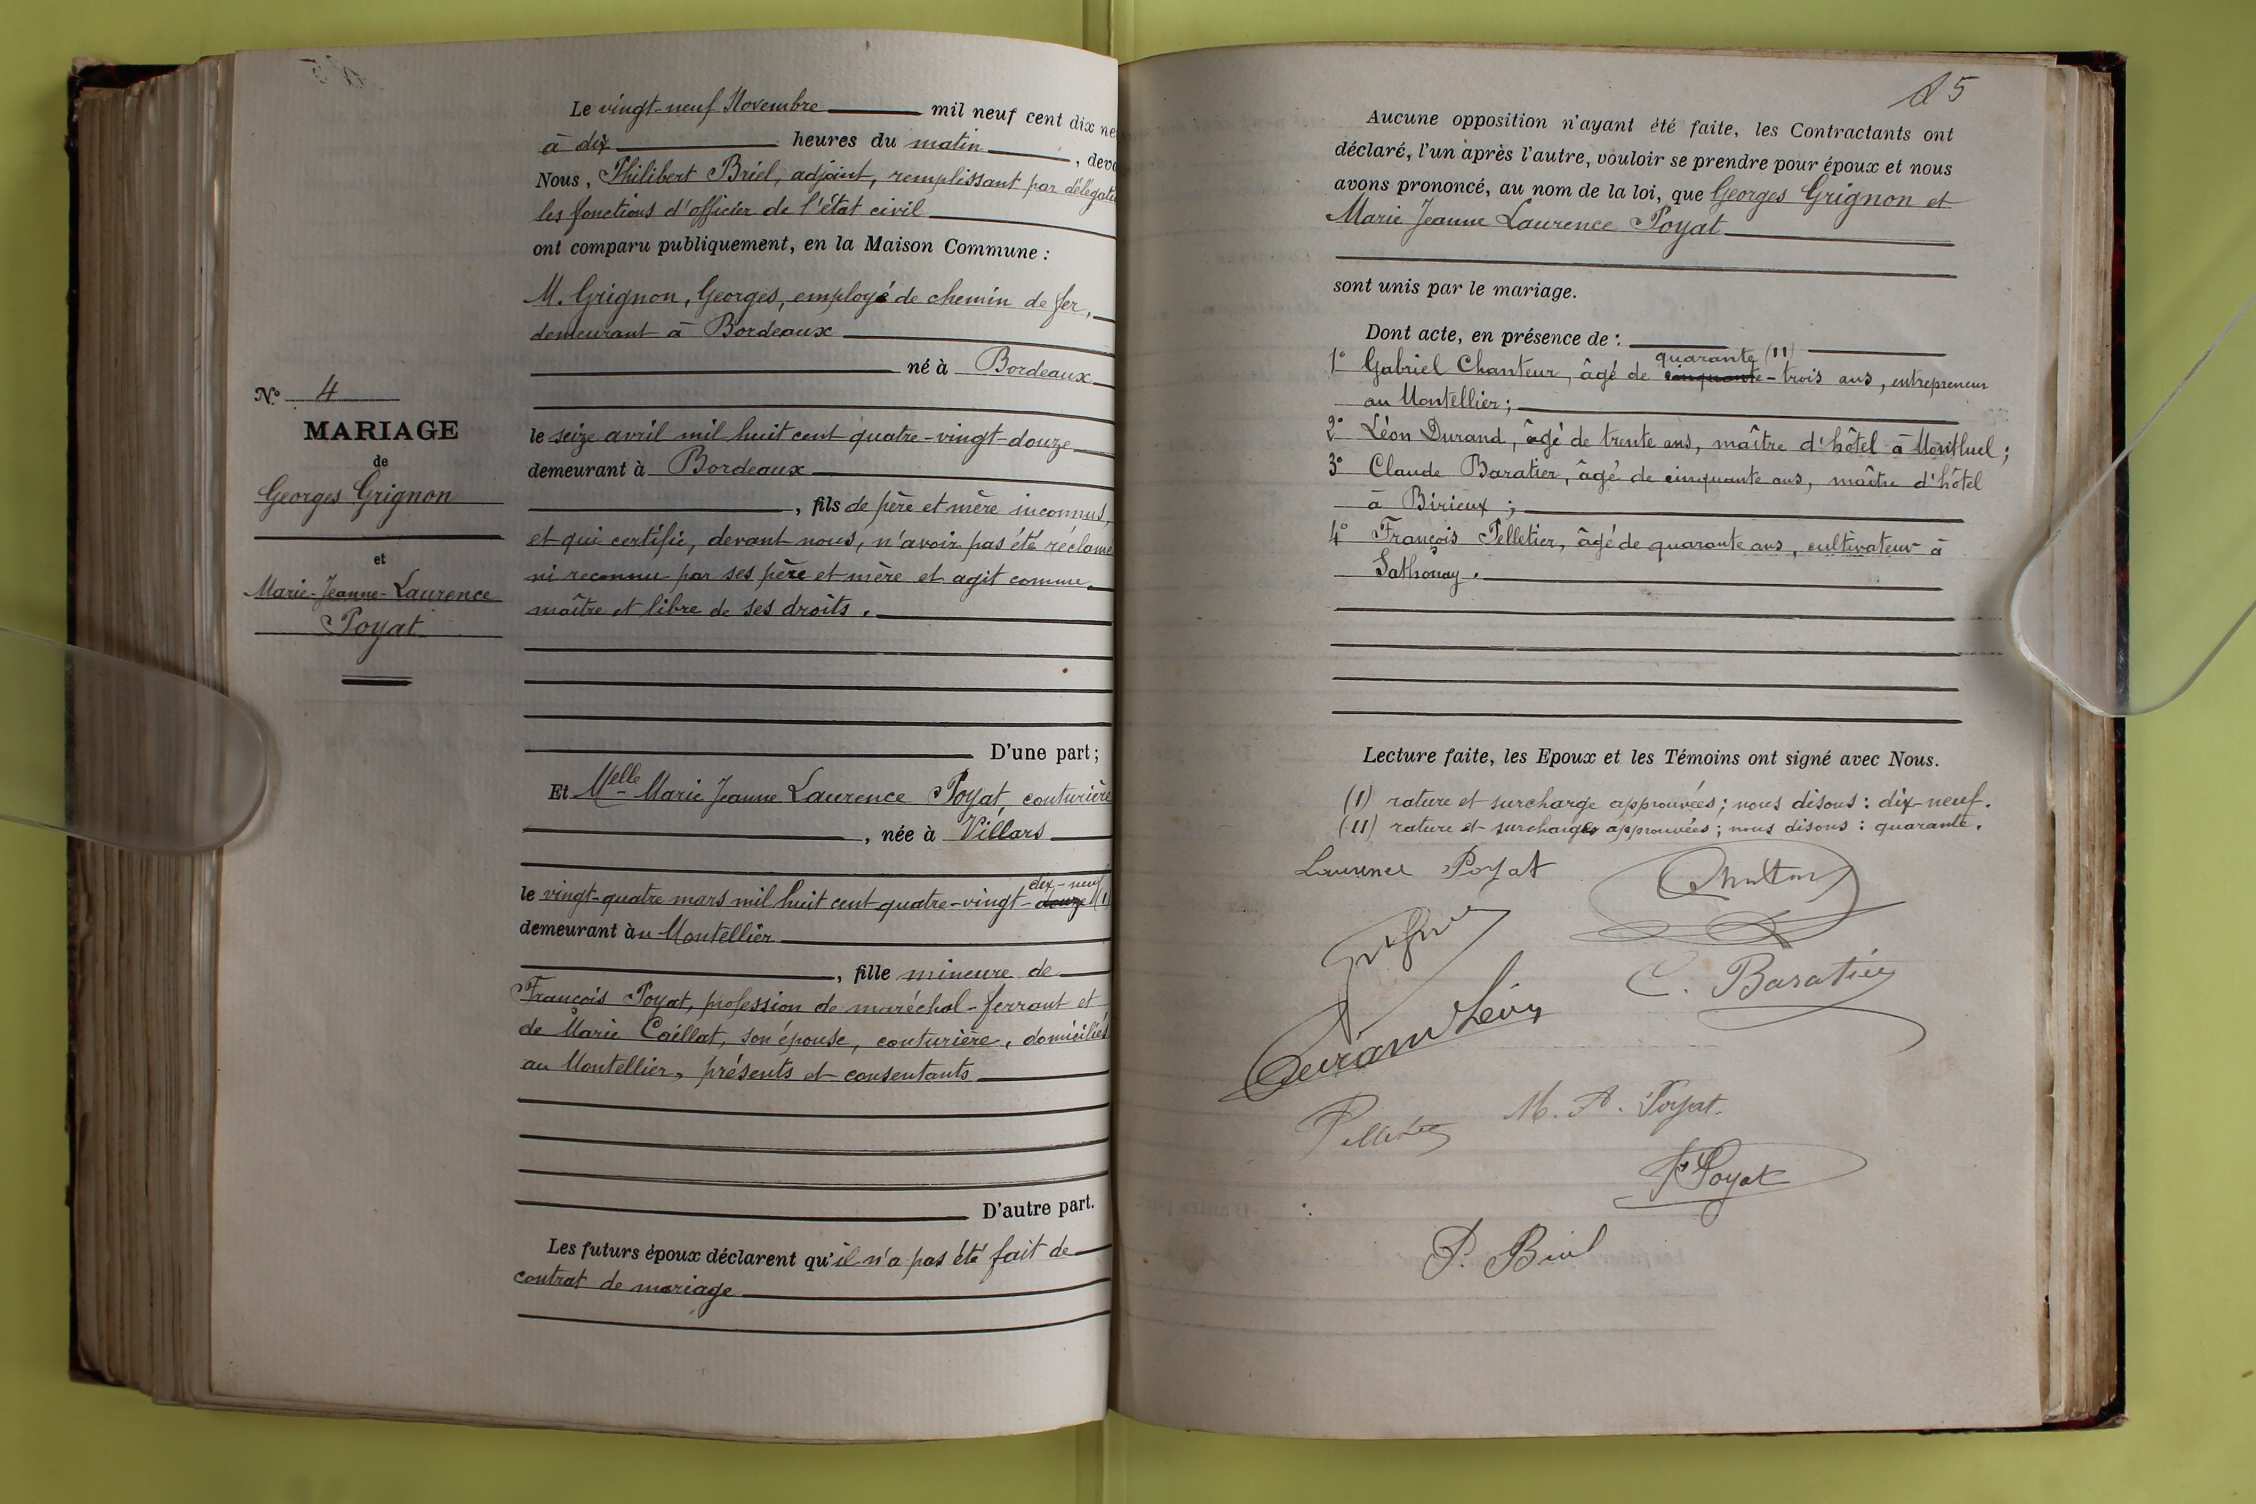 Le vingt-neuf Novembre mil neuf cent dix ne
à dix heures du matin, deva
Nous, Philibert Briel, adjoint, remplissant par délégati
les fonctions d'officier de l'état civil
ont comparu publiquement, en la Maison Commune :
M. Grignon, Georges, employé de chemin de fer,
demeurant à Bordeaux
né à Bordeaux
le seize avril mil huit cent quatre-vingt-douze
demeurant à Bordeaux
, fils de père et mère inconnus,
et qui certifie, devant nous, n'avoir pas été réclamé
ni reconnu par ses père et mère et agit comme
maître et libre de ses droits.
D'une part ;
Et Melle Marie Jeanne Laurence Poyat, couturière
, née à Villars
dix-neuf
le vingt-quatre mars mil huit cent quatre-vingt-douze (I)
demeurant àu Montellier
, fille mineure de
François Poyat, profession de maréchal-ferrant et
de Marie Caillat, son épouse, couturière, domiciliés
au Montellier, présents et consentants
D'autre part.
Les futurs époux déclarent qu'il n'a pas été fait de
contrat de mariage
N° 4
MARIAGE
de
Georges Grignon
et
Marie-Jeanne-Laurence
Poyat
85
Aucune opposition n'ayant été faite, les Contractants ont
déclaré, l'un après l'autre, vouloir se prendre pour époux et nous
avons prononcé, au nom de la loi, que Georges Grignon et
Marie Jeanne Laurence Poyat
sont unis par le mariage.
Dont acte, en présence de :
quarante (II)
1° Gabriel Chanteur, âgé de cinquante-trois ans, entrepreneur
au Montellier ;
2° Léon Durand, âgé de trente ans, maître d'hôtel à Montluel ;
3° Claude Baratier, âgé de cinquante ans, maître d'hôtel
à Birieux ;
4° François Pelletier, âgé de quarante ans, cultivateur à
Sathonay.
Lecture faite, les Epoux et les Témoins ont signé avec Nous.
(I) rature et surcharge approuvées ; nous disons : dix-neuf.
(II) rature et surcharges approuvées ; nous disons : quarante.
Laurence Poyat
C. Baratier
Durand Léon
M. Poyat
Pelletier
F Poyat
P. Briel